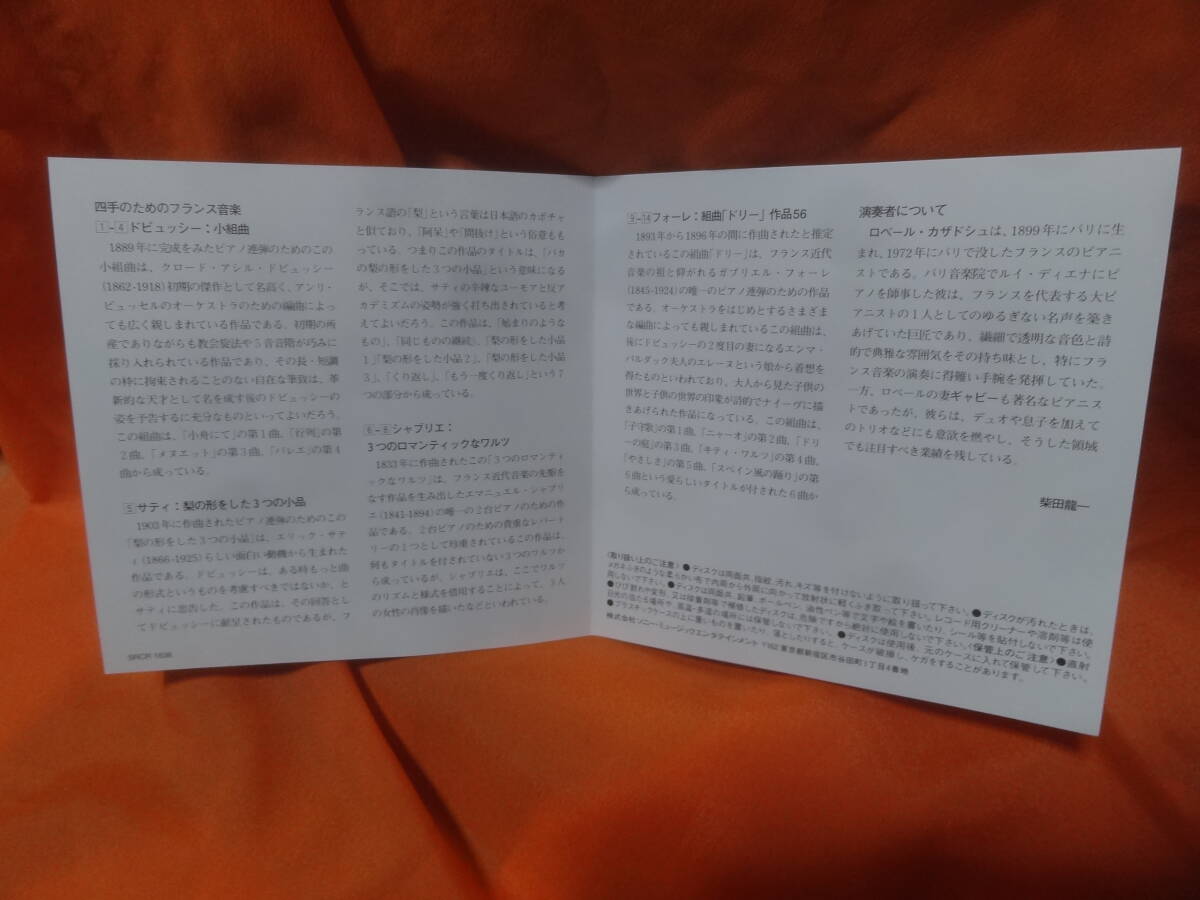 四手のためのフランス音楽
1-4ドビュッシー：小組曲
1889年に完成をみたピアノ連弾のためのこの
小組曲は、クロード・アシル・ドビュッシー
(1862-1918)初期の傑作として名高く、アンリ・
ビュッセルのオーケストラのための編曲によっ
ても広く親しまれている作品である。初期の所
産でありながらも教会旋法や5音音階が巧みに
採り入れられている作品であり、その長・短調
の枠に拘束されることのない自在な筆致は、革
新的な天才として名を成す後のドビュッシーの
姿を予告するに充分なものといってよいだろう。
この組曲は、「小舟にて」の第1曲、「行列」の第
2曲、「メヌエット」の第3曲、「バレエ」の第4
曲から成っている。
5サティ：梨の形をした3つの小品
1903年に作曲されたピアノ連弾のためのこの
「梨の形をした3つの小品」は、エリック・サテ
ィ(1866-1925)らしい面白い動機から生まれた
作品である。ドビュッシーは、ある時もっと曲
の形式というものを考慮すべきではないか、と
サティに忠告した。この作品は、その回答とし
てドビュッシーに献呈されたものであるが、フ
SRCR 1638
ランス語の「梨」という言葉は日本語のカボチャ
と似ており、「阿呆」や「間抜け」という俗意もも
っている。つまりこの作品のタイトルは、「バカ
の梨の形をした3つの小品」という意味になる
が、そこでは、サティの辛辣なユーモアと反ア
カデミズムの姿勢が強く打ち出されていると考
えてよいだろう。この作品は、「始まりのような
もの」、「同じものの継続」、「梨の形をした小品
1」「梨の形をした小品2」、「梨の形をした小品
3」、「くり返し」、「もう一度くり返し」という7
つの部分から成っている。
6-8シャブリエ：
3つのロマンティックなワルツ
1833年に作曲されたこの「3つのロマンティ
ックなワルツ」は、フランス近代音楽の先駆を
なす作品を生み出したエマニュエル・シャブリ
エ(1841-1894)の唯一の2台ピアノのための作
品である。2台ピアノのための貴重なレパート
リーの1つとして珍重されているこの作品は、
何もタイトルを付されていない3つのワルツか
ら成っているが、シャブリエは、ここでワルツ
のリズムと様式を借用することによって、3人
の女性の肖像を描いたなどといわれている。
9-14フォーレ：組曲「ドリー」作品56
1893年から1896年の間に作曲されたと推定
されているこの組曲「ドリー」は、フランス近代
音楽の祖と仰がれるガブリエル・フォーレ
(1845-1924)の唯一のピアノ連弾のための作品
である。オーケストラをはじめとするさまざま
な編曲によっても親しまれているこの組曲は、
後にドビュッシーの2度目の妻になるエンマ・
バルダック夫人のエレーヌという娘から着想を
得たものといわれており、大人から見た子供の
世界と子供の世界の印象が詩的でナイーヴに描
きあげられた作品になっている。この組曲は、
「子守歌」の第1曲、「ニャーオ」の第2曲、「ドリ
ーの庭」の第3曲、「キティ・ワルツ」の第4曲、
「やさしさ」の第5曲、「スペイン風の踊り」の第
6曲という愛らしいタイトルが付された6曲か
ら成っている。
演奏者について
ロベール・カザドシュは、1899年にパリに生
まれ、1972年にパリで没したフランスのピアニ
ストである。パリ音楽院でルイ・ディエナにピ
アノを師事した彼は、フランスを代表する大ピ
アニストの1人としてのゆるぎない名声を築き
あげていた巨匠であり、繊細で透明な音色と詩
的で典雅な雰囲気をその持ち味とし、特にフラ
ンス音楽の演奏に得難い手腕を発揮していた。
一方、ロベールの妻ギャビーも著名なピアニス
トであったが、彼らは、デュオや息子を加えて
のトリオなどにも意欲を燃やし、そうした領域
でも注目すべき業績を残している。
柴田龍一
〈取り扱い上のご注意〉●ディスクは両面共、指紋、汚れ、キズ等を付けないように取り扱って下さい。●ディスクが汚れたときは、
メガネふきのような柔らかい布で内周から外周に向かって放射状に軽くふき取って下さい。レコード用クリーナーや溶剤等は使
用しないで下さい。●ディスクは両面共、鉛筆、ボールペン、油性ペン等で文字や絵を書いたり、シール等を貼付しないで下さい。
●ひび割れや変形、又は接着剤等で補修したディスクは、危険ですから絶対に使用しないで下さい。〈保管上のご注意〉●直射
日光の当たる場所や、高温・多湿の場所には保管しないで下さい。●ディスクは使用後、元のケースに入れて保管して下さい。
●プラスチックケースの上に重いものを置いたり、落としたりすると、ケースが破損し、ケガをすることがあります。
株式会社 ソニー・ミュージックエンタテインメント 〒162 東京都新宿区市谷田町1丁目4番地